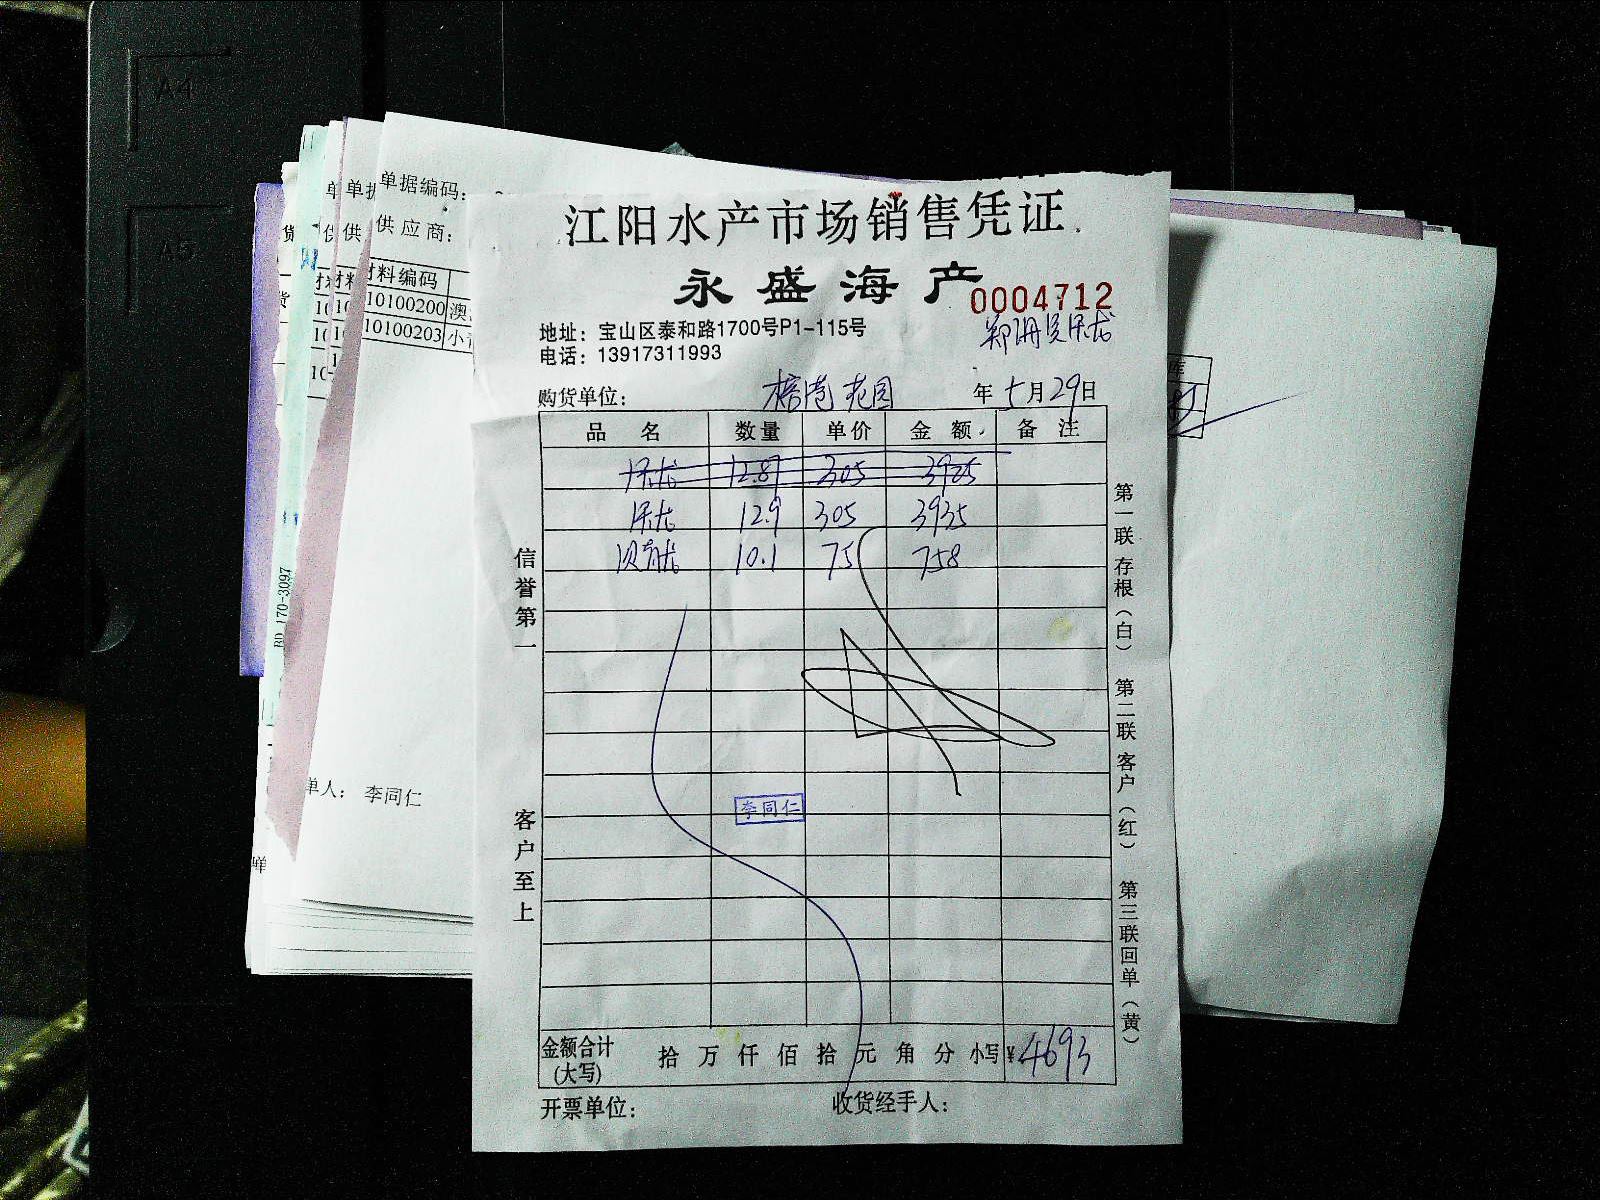 A4
A5
单据编码:
供应商:
材料编码
10100200 澳
10100203 小
单人: 李同仁
BD 170-3097
江阳水产市场销售凭证
永盛海产
0004712
地址: 宝山区泰和路1700号P1-115号
电话: 13917311993
购货单位: 花园 年 5月29日
品名 数量 单价 金额 备注
12.87 305 3925
12.9 305 3935
10.1 75 758
李同仁
信誉第一
客户至上
第一联存根(白) 第二联客户(红) 第三联回单(黄)
金额合计(大写) 拾 万 仟 佰 拾 元 角 分 小写¥4693
开票单位: 收货经手人: